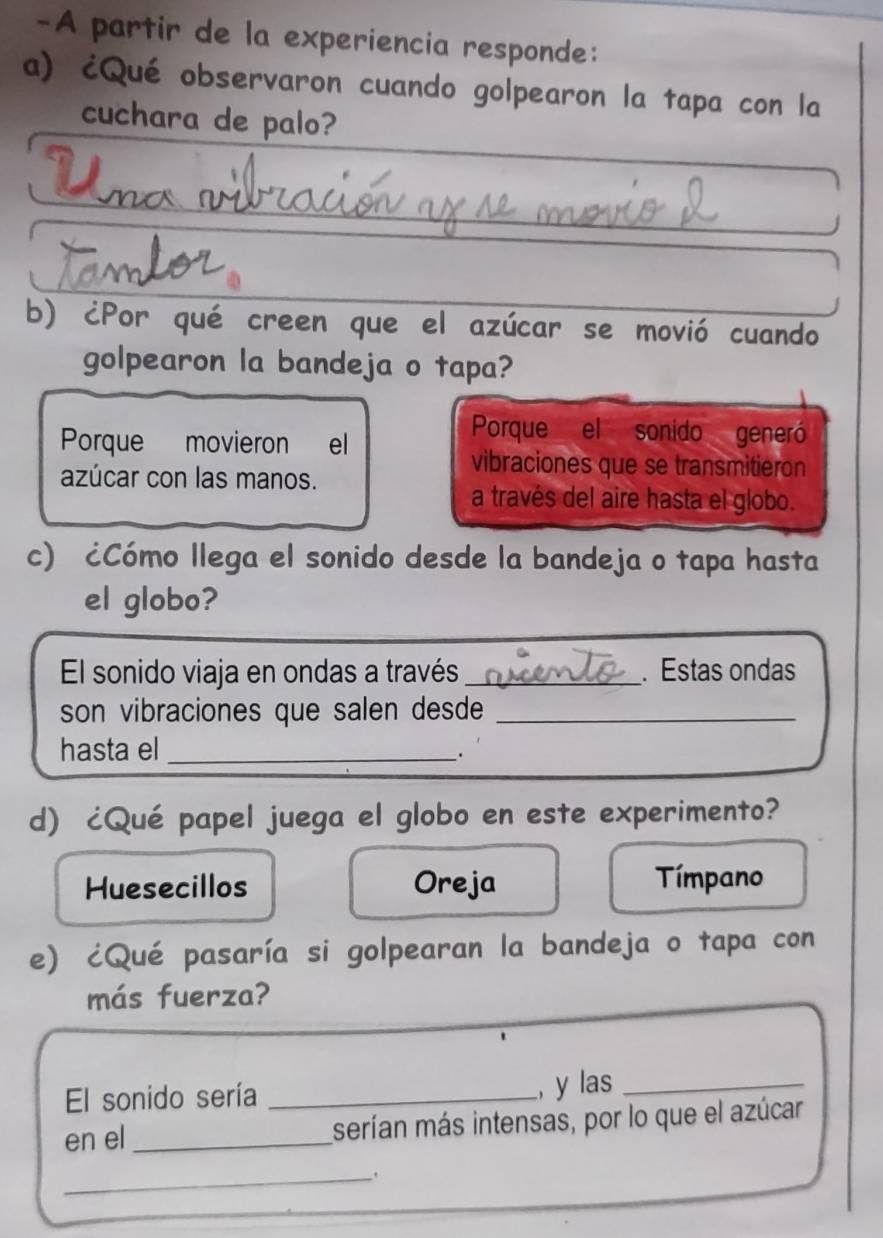 -A partir de la experiencia responde:
a) ¿Qué observaron cuando golpearon la tapa con la
cuchara de palo?
Una vibración y se movió el
Tambor.
b) ¿Por qué creen que el azúcar se movió cuando
golpearon la bandeja o tapa?
Porque movieron el
azúcar con las manos.
Porque el sonido generó
vibraciones que se transmitieron
a través del aire hasta el globo.
c) ¿Cómo llega el sonido desde la bandeja o tapa hasta
el globo?
El sonido viaja en ondas a través viento. Estas ondas
son vibraciones que salen desde ____
hasta el ____.
d) ¿Qué papel juega el globo en este experimento?
Huesecillos
Oreja
Tímpano
e) ¿Qué pasaría si golpearan la bandeja o tapa con
más fuerza?
El sonido sería ____, y las ____
en el ____ serían más intensas, por lo que el azúcar
____.